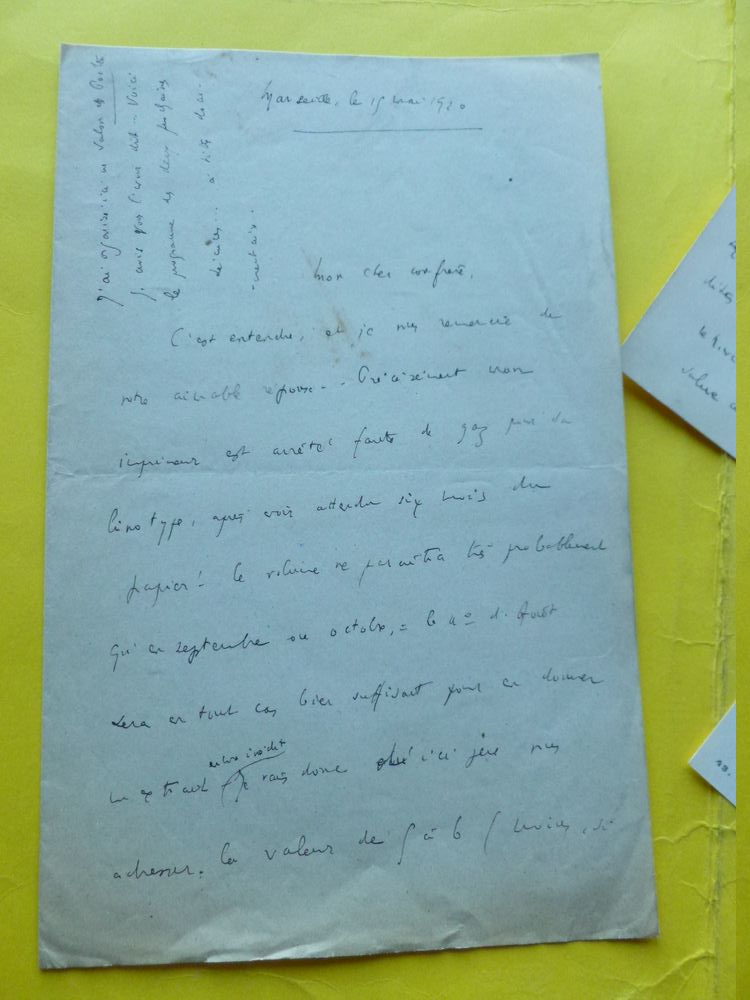 Marseille, le 15 mai 1920
J'ai organisé ici un Salon de Poète
je vous l'avais dit - Voici
le programme des deux prochaines
séances... à titre docu-
-mentaire.
Mon cher confrère,
C'est entendu, et je vous remercie de
votre aimable réponse. Précisément mon
imprimeur est arrêté faute de gaz pour sa
linotype, après avoir attendu six mois du
papier! Le volume ne paraîtra très probablement
qu'en septembre ou octobre, = le nº d'Août
sera en tout cas bien suffisant pour en donner
un extrait encore inédit je vais donc ici vous
adresser. la valeur de 5 à 6